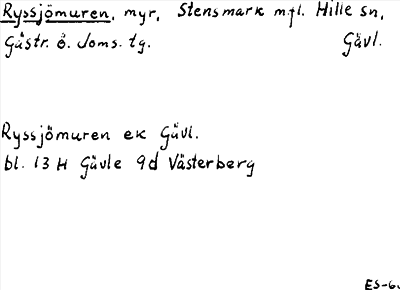 Ryssjömuren, myr, Stensmark mfl. Hille sn,
Gästr. ö. doms. tg. Gävl.
Ryssjömuren ek Gävl.
bl. 13 H Gävle 9d Västerberg